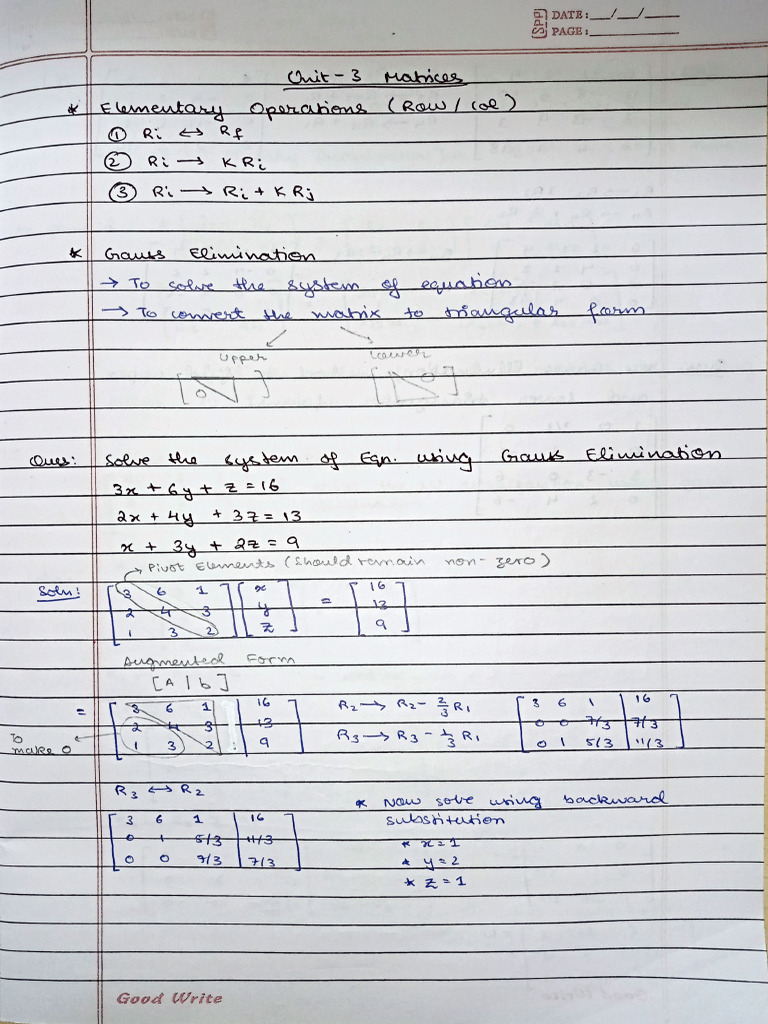 SPP DATE: __/__/____
PAGE: ________
Unit - 3 Matrices
* Elementary Operations (Row / Col)
① Ri ↔ Rf
② Ri → K Ri
③ Ri → Ri + K Rj
* Gauss Elimination
→ To solve the system of equation
→ To convert the matrix to triangular form
Upper Lower
[ 0 ] [ 0 ]
Ques: Solve the system of Eqn. using Gauss Elimination
3x + 6y + z = 16
2x + 4y + 3z = 13
x + 3y + 2z = 9
→ Pivot Elements (Should remain non-zero)
Soln: [ 3 6 1 ] [ x ] = [ 16 ]
[ 2 4 3 ] [ y ] [ 13 ]
[ 1 3 2 ] [ z ] [ 9 ]
Augmented Form
[A | b]
= [ 3 6 1 | 16 ] R2 → R2 - 2/3 R1 [ 3 6 1 | 16 ]
To make 0 [ 2 4 3 | 13 ] [ 0 0 7/3 | 7/3 ]
[ 1 3 2 : | 9 ] R3 → R3 - 1/3 R1 [ 0 1 5/3 | 11/3 ]
R3 ↔ R2
[ 3 6 1 | 16 ] * Now solve using backward
[ 0 1 5/3 | 11/3 ] substitution
[ 0 0 7/3 | 7/3 ] * x = 1
* y = 2
* z = 1
Good Write